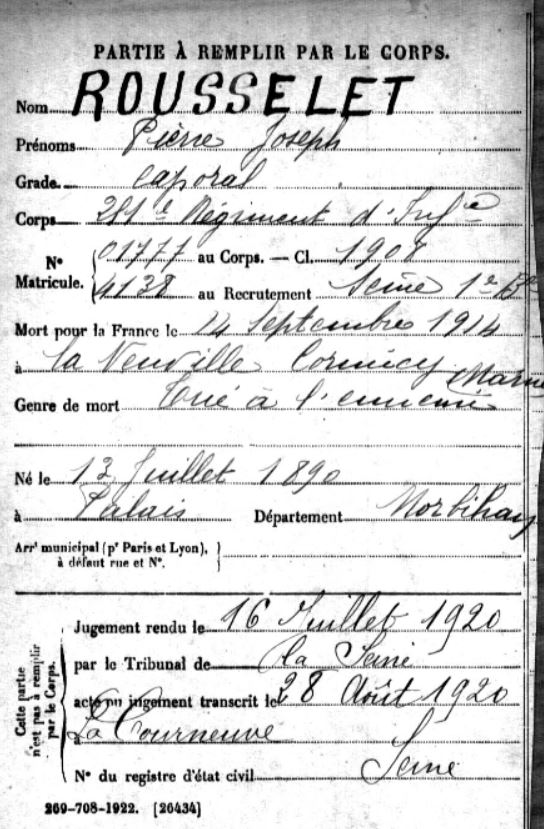 PARTIE À REMPLIR PAR LE CORPS.
Nom ROUSSELET
Prénoms Pierre Joseph
Grade Caporal
Corps 281e Régiment d'Infie
N° Matricule. 01777 au Corps. — Cl. 1908
4138 au Recrutement Seine 1er
Mort pour la France le Septembre 1914
à la Neuville Cormicy Marne
Genre de mort Tué à l'ennemi
Né le 13 Juillet 1890
à Palais Département Morbihan
Arrt municipal (pr Paris et Lyon),
à défaut rue et N°.
Cette partie n'est pas à remplir par le Corps.
Jugement rendu le 16 Juillet 1920
par le Tribunal de la Seine
acte ou jugement transcrit le 28 Août 1920
à La Courneuve
Seine
N° du registre d'état civil
269-708-1922. [26434]